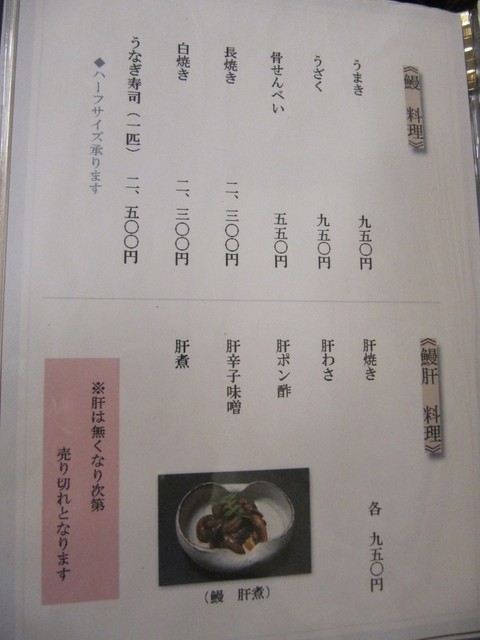 《鰻 料理》
うまき 九五〇円
うざく 九五〇円
骨せんべい 五五〇円
長焼き 二、三〇〇円
白焼き 二、三〇〇円
うなぎ寿司（一匹） 二、五〇〇円
◆ハーフサイズ承ります
《鰻肝 料理》
肝焼き
肝わさ
肝ポン酢
肝辛子味噌
肝煮
各 九五〇円
（鰻 肝煮）
※肝は無くなり次第
売り切れとなります